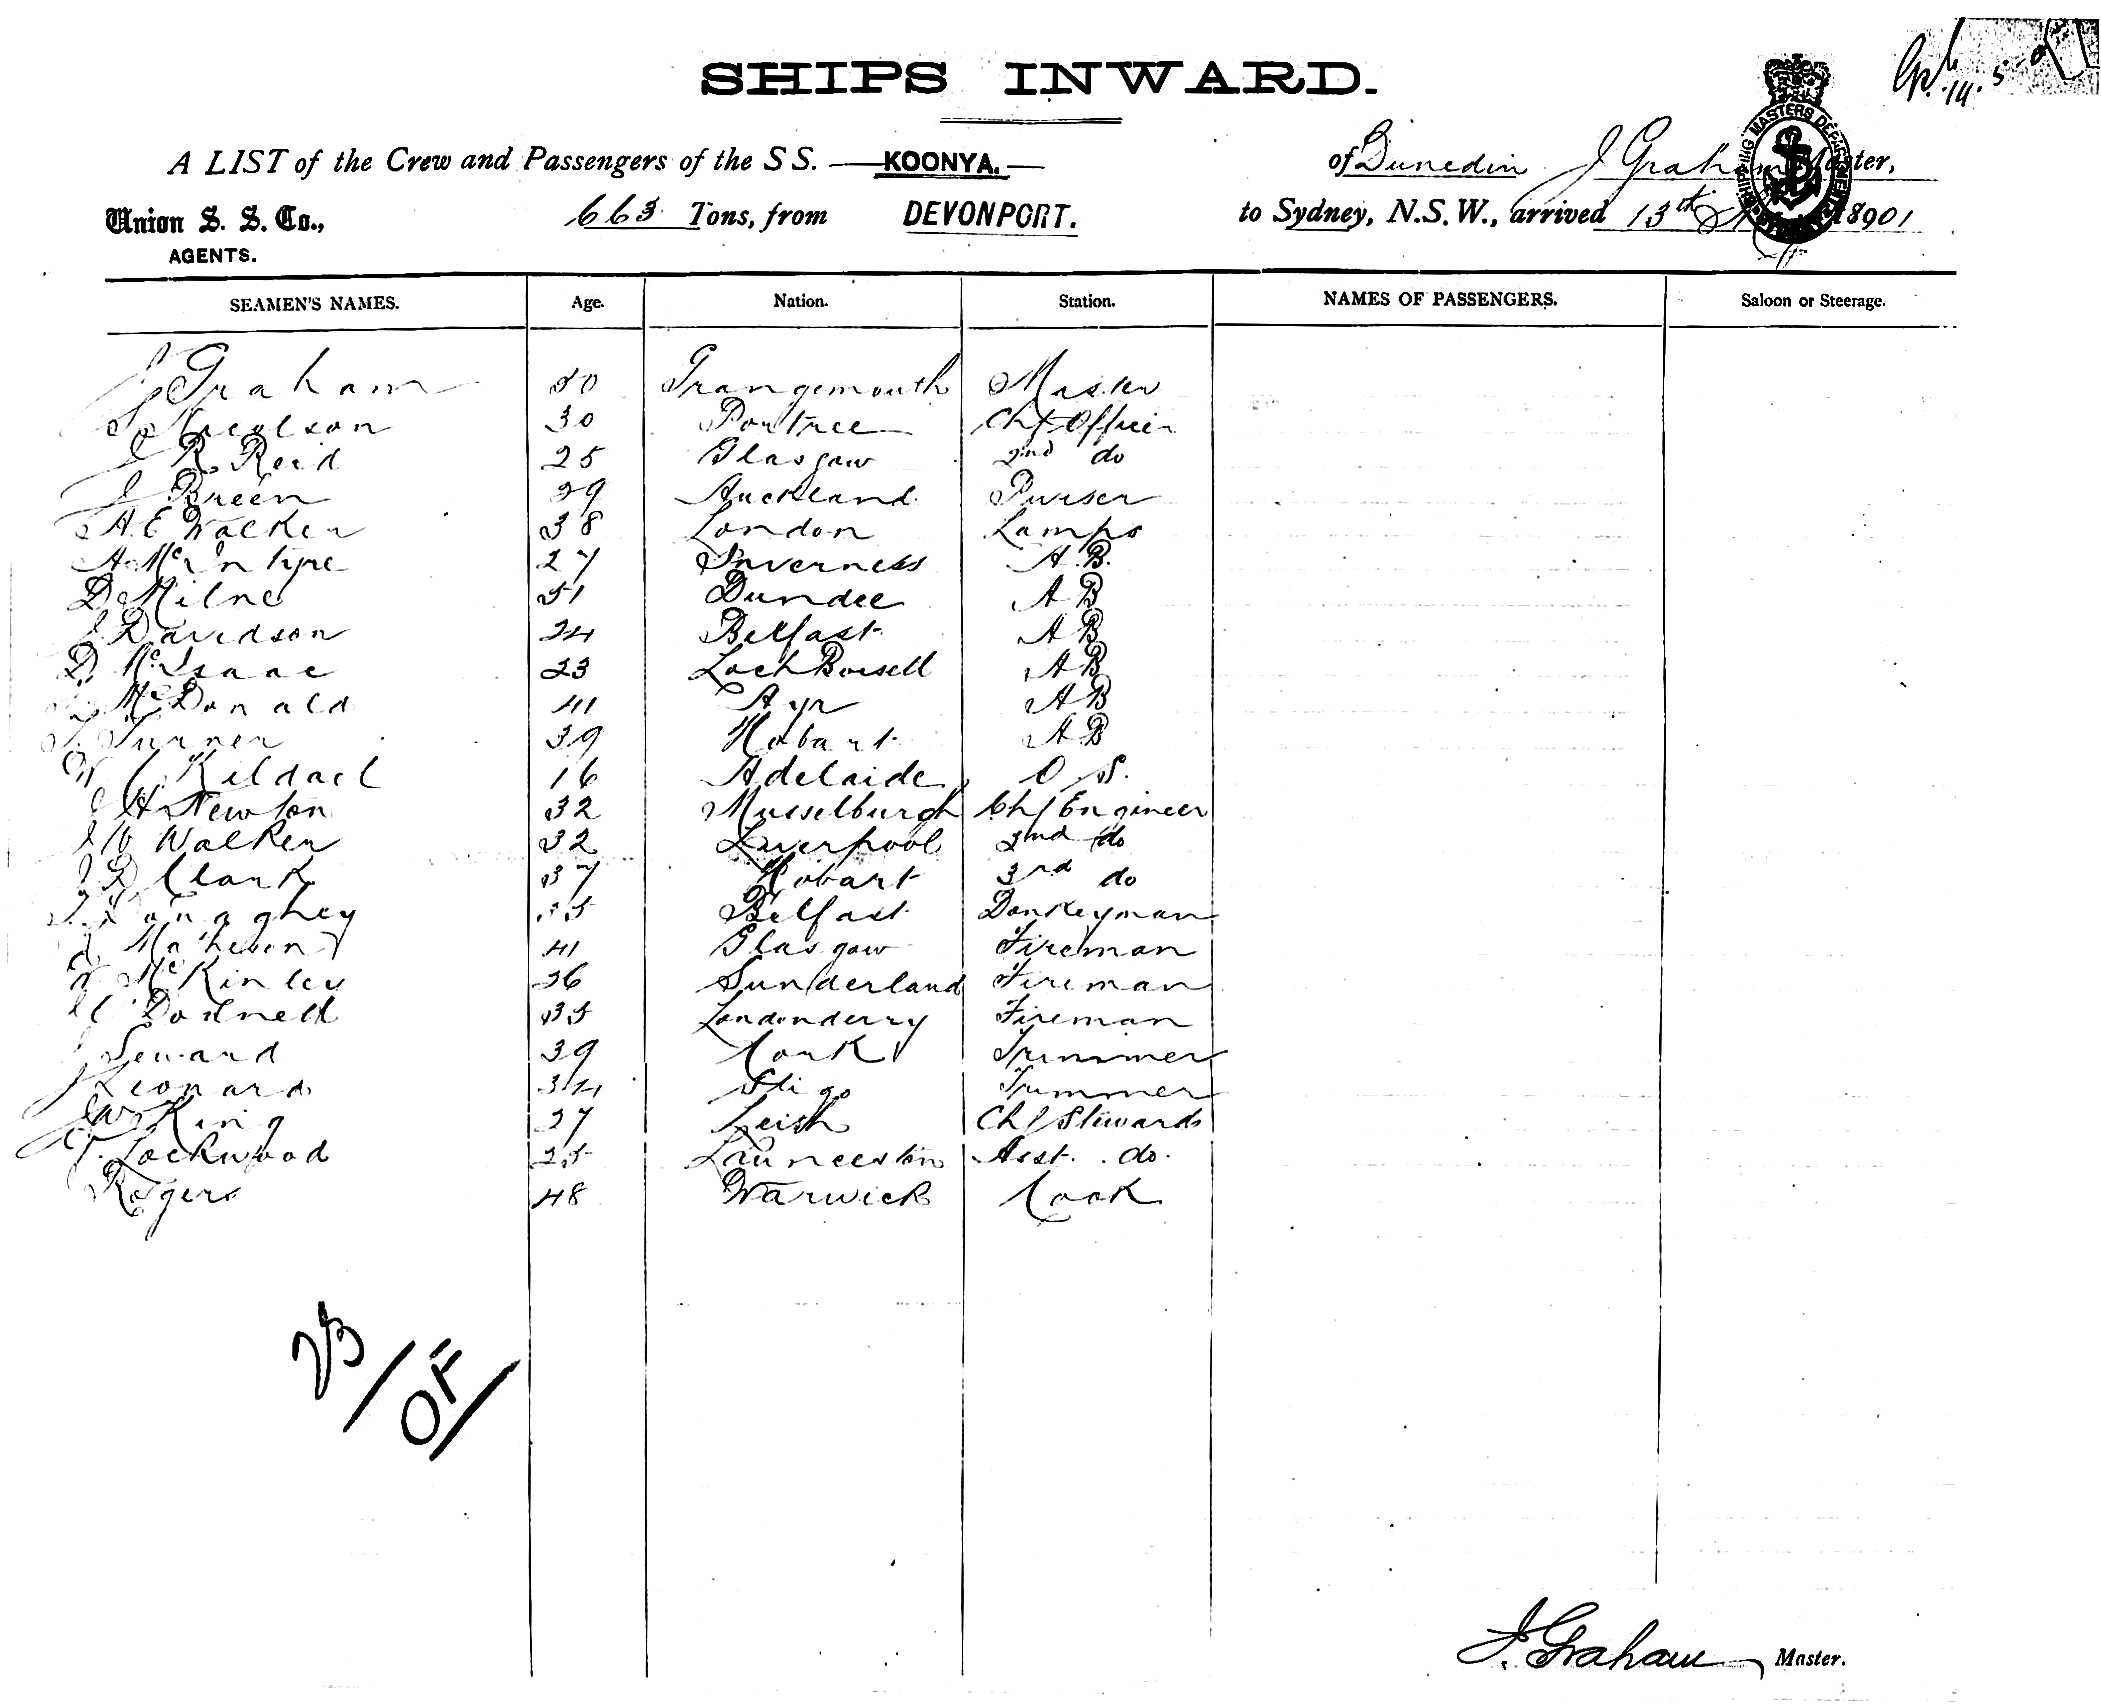 SHIPS INWARD.
A LIST of the Crew and Passengers of the SS. KOONYA. of Dunedin J Graham Master,
Union S. S. Co., 663 Tons, from DEVONPORT. to Sydney, N.S.W., arrived 13th 18901
AGENTS.
SEAMEN'S NAMES. Age. Nation. Station. NAMES OF PASSENGERS. Saloon or Steerage.
J Graham 50 Grangemouth Master
S Nicolson 30 Portree Chf Officer
J R Reid 25 Glasgow 2nd do
J Breen 29 Auckland Purser
A. E Walker 38 London Lamps
A McIntyre 27 Inverness A.B.
D Milne 51 Dundee A B
J Davidson 24 Belfast A B
D McIsaac 23 Loch Boisell A B
McDonald 41 Ayr A B
T. Turner 39 Hobart A B
W C Kildael 16 Adelaide O S.
J H Newton 32 Musselburgh Chf Engineer
J W Walker 32 Liverpool 2nd do
J D Clark 37 Hobart 3rd do
35 Belfast Donkeyman
Matheson 41 Glasgow Fireman
McKinley 26 Sunderland Fireman
Donnell 35 Londonderry Fireman
J Seward 39 Cork Trimmer
J Leonard 34 Sligo Trimmer
J W King 27 Leith Chf Stewards
T. Lockwood 25 Launceston Asst. do.
Rogers 48 Warwick Cook
23/OF
J. Graham Master.